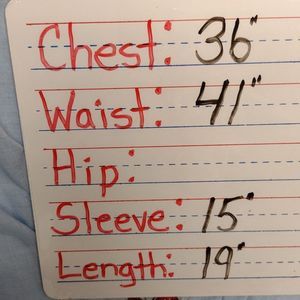 Chest: 36"
Waist: 41"
Hip:
Sleeve: 15"
Length: 19"